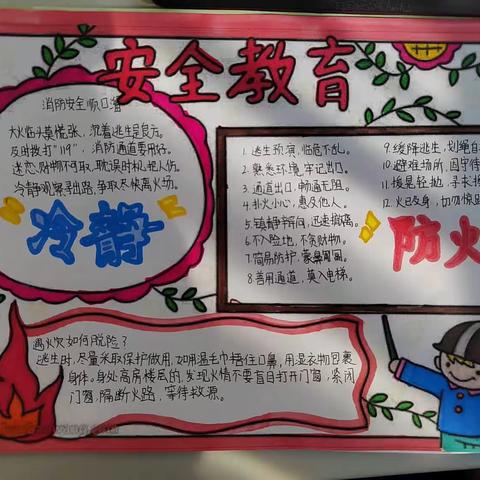 安全教育
消防安全顺口溜
大火临头莫慌张，沉着逃生是良方。
及时拨打"119"，消防通道要用好。
迷恋财物不可取，耽误时机把人伤。
冷静观察寻出路，争取尽快离火场。
冷静
1. 逃生预演，临危不乱。
2. 熟悉环境，牢记出口。
3. 通道出口，畅通无阻。
4. 扑火小心，惠及他人。
5. 镇静辨向，迅速撤离。
6. 不入险地，不贪财物。
7. 简易防护，蒙鼻匍匐。
8. 善用通道，莫入电梯。
9. 缓降逃生，
10. 避难场所，固守待
11. 缓晃轻抛，寻求
12. 火已及身，切勿惊
防火
遇火灾如何脱险？
逃生时，尽量采取保护做用，如用湿毛巾捂住口鼻，用湿衣物包裹
身体。身处高房楼层的，发现火情不要盲目打开门窗，紧闭
门窗，隔断火路，等待救源。